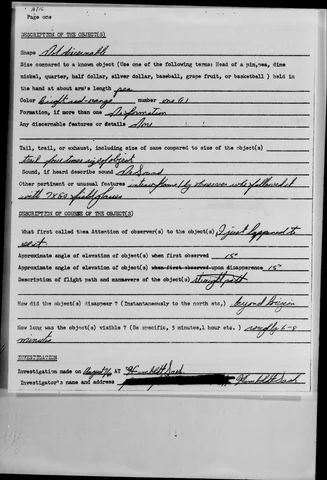 Page one
DESCRIPTION OF THE OBJECT(S)
Shape Not discernable
Size compared to a known object (Use one of the following terms: Head of a pin, pea, dime
nickel, quarter, half dollar, silver dollar, baseball, grape fruit, or basketball) held in
the hand at about arm's length pea
Color bright red-orange number one (1)
Formation, if more than one No formation
Any discernable features or details None
Tail, trail, or exhaust, including size of same compared to size of the object(s)
trail four times size of object
Sound, if heard describe sound No Sound
Other pertinent or unusual features by observer who followed it
with 7X50 field glasses
DESCRIPTION OF COURSE OF THE OBJECT(S)
What first called the Attention of observer(s) to the object(s) I just happened to
see it
Approximate angle of elevation of object(s) when first observed 15°
Approximate angle of elevation of object(s) when first observed upon disappearance 15°
Description of flight path and manuevers of the object(s) straight path
How did the object(s) disappear ? (Instantaneously to the north etc,) beyond horizon
How long was the object(s) visible ? (Be specific, 5 minutes, 1 hour etc. ) roughly 6-8
minutes
INVESTIGATION
Investigation made on AT Humboldt Sask
Investigator's name and address Humboldt Sask